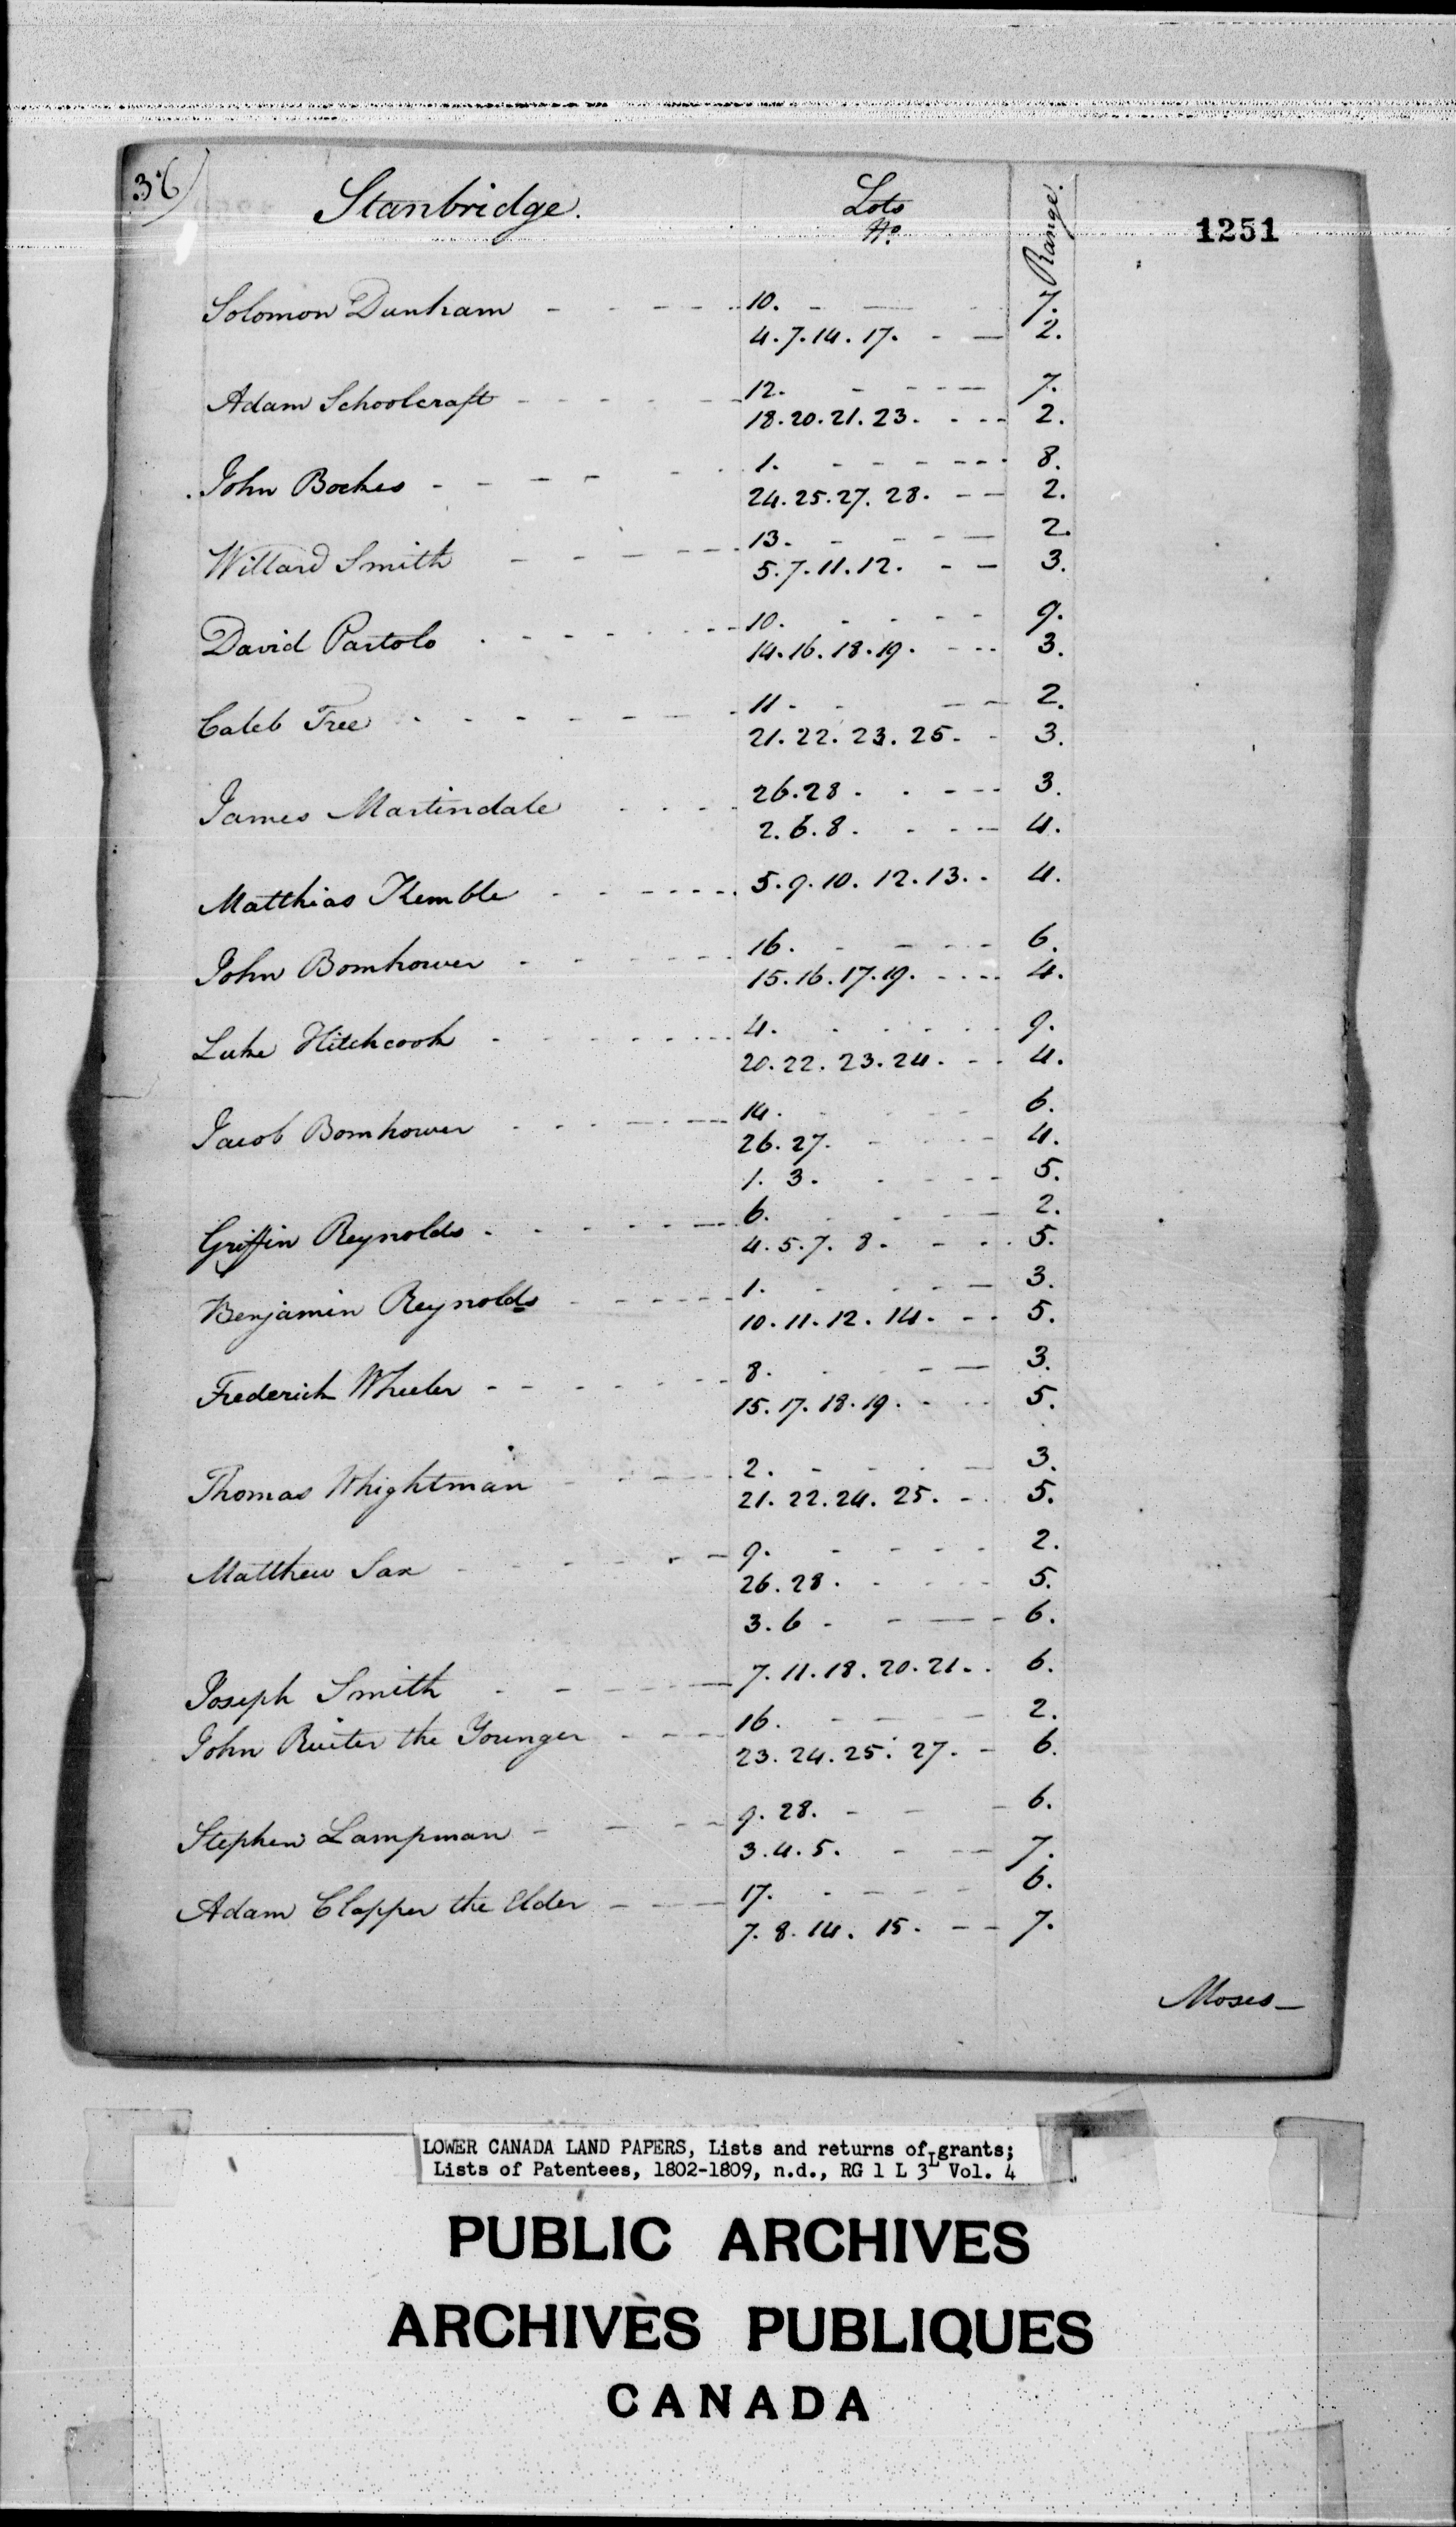 36)
Stanbridge.
Lots
No.
Range.
1251
Solomon Dunham - - - - - 10. - - - 7.
4. 7. 14. 17. - - 2.
Adam Schoolcraft - - - - - 12. - - - - 7.
18. 20. 21. 23. - - - 2.
John Bockes - - - - - - 1. - - - - - - 8.
24. 25. 27. 28. - - 2.
Willard Smith - - - - - - 13. - - - - 2.
5. 7. 11. 12. - - 3.
David Partolo - - - - - - - 10. - - - - - 9.
14. 16. 18. 19. - - - 3.
Caleb Tree - - - - - - - 11 - - - - 2.
21. 22. 23. 25. - - 3.
James Martindale - - - 26. 28. - - - - 3.
2. 6. 8. - - - - 4.
Matthias Kemble - - - - - - 5. 9. 10. 12. 13. - 4.
John Bomhower - - - - - - 16. - - - - - 6.
15. 16. 17. 19. - - - - 4.
Luke Hitchcook - - - - - - - 4. - - - - - - 9.
20. 22. 23. 24. - - - 4.
Jacob Bomhower - - - - - - 14. - - - - 6.
26. 27. - - - - 4.
1. 3. - - - - 5.
Griffin Reynolds - - - - - - 6. - - - - 2.
4. 5. 7. 8. - - - - 5.
Benjamin Reynolds - - - - - - 1. - - - - 3.
10. 11. 12. 14. - - - 5.
Frederick Wheeler - - - - - - - 8. - - - - 3.
15. 17. 18. 19. - - - 5.
Thomas Whightman - - - - - 2. - - - - - 3.
21. 22. 24. 25. - - 5.
Matthew Sax - - - - - - - 9. - - - - - 2.
26. 28. - - - - 5.
3. 6 - - - - - 6.
Joseph Smith - - - - - - 7. 11. 18. 20. 21. - - 6.
John Ruiter the Younger - - - - 16. - - - - 2.
23. 24. 25. 27. - - 6.
Stephen Lampman - - - - 9. 28. - - - 6.
3. 4. 5. - - - 7.
Adam Clapper the Elder - - - - 17. - - - - - 6.
7. 8. 14. 15. - - - 7.
Moses -
LOWER CANADA LAND PAPERS, Lists and returns of grants;
Lists of Patentees, 1802-1809, n.d., RG 1 L 3L Vol. 4
PUBLIC ARCHIVES
ARCHIVES PUBLIQUES
CANADA